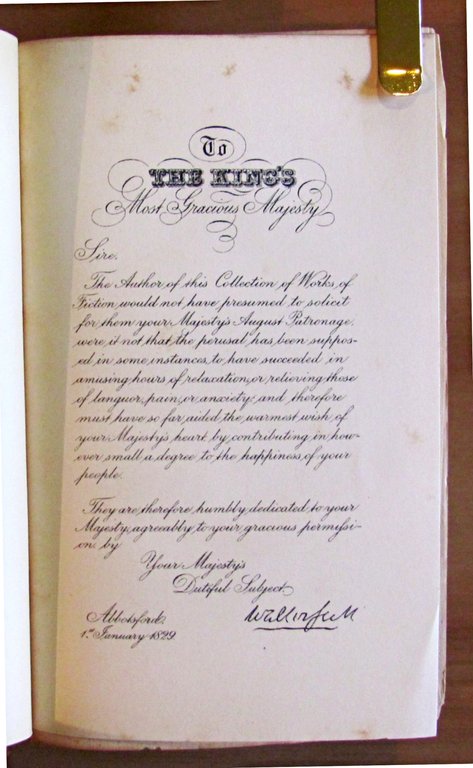 To
THE KING'S
Most Gracious Majesty
Sire.
The Author of this Collection of Works of
Fiction would not have presumed to solicit
for them your Majesty's August Patronage,
were it not that the perusal has been suppos-
ed in some instances, to have succeeded in
amusing hours of relaxation, or relieving those
of languor, pain, or anxiety; and therefore
must have so far aided the warmest wish of
your Majesty's heart, by contributing in how-
ever small a degree to the happiness of your
people.
They are therefore humbly dedicated to your
Majesty, agreeably to your gracious permissi-
on by
Your Majesty's
Dutiful Subject
Walter Scott
Abbotsford.
1st January 1829